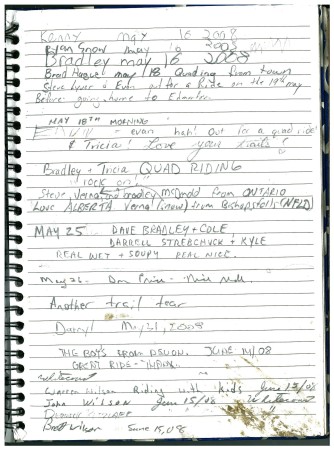 Kenny May 16 2008
Brian Snow may 16 2008
Bradley may 16 2008
Brad Hague may 18 Quading from town
Steve Lyver + Evan out for a Ride on the 19th may
Before going home to Edmonton
MAY 18TH MORNING
- evan hah! Out for a quad ride
& Tricia! Love your trails!
Bradley + Tricia QUAD RIDING
"rock on!"
Steve, Verna, and Bradley McDonald from ONTARIO
Love ALBERTA Verna (Snow) from Bishop's Falls (NFLD)
MAY 25 DAVE BRADLEY + COLE,
DARRELL STREBCHUCK + KYLE
REAL WET + SOUPY REAL NICE.
May 26 - Don Price - Nice
Another trail tear
Darryl May 31, 2008
THE BOYS FROM DEVON. JUNE 14/08
GREAT RIDE -
Whitecourt
Warren Wilson Riding with kids June 15/08
John Wilson June 15/08 Whitecourt
Brett Wilson June 15, 08